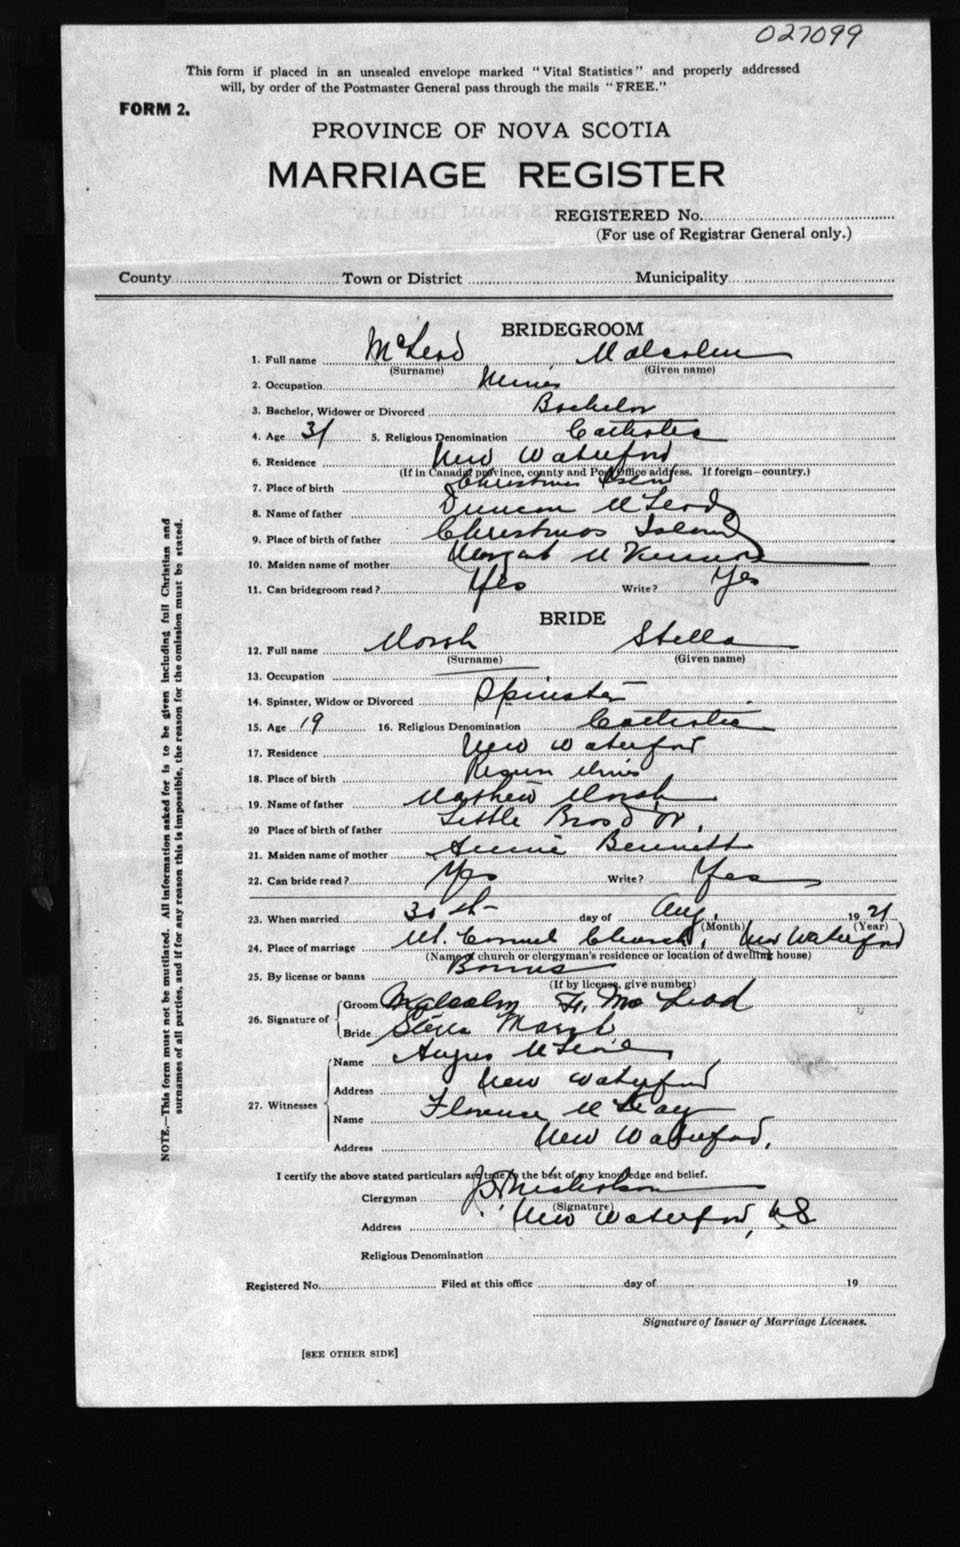 027099
This form if placed in an unsealed envelope marked "Vital Statistics" and properly addressed
will, by order of the Postmaster General pass through the mails "FREE."
FORM 2.
PROVINCE OF NOVA SCOTIA
MARRIAGE REGISTER
REGISTERED No.
(For use of Registrar General only.)
County Town or District Municipality
BRIDEGROOM
1. Full name McLeod Malcolm
(Surname) (Given name)
2. Occupation Miner
3. Bachelor, Widower or Divorced Bachelor
4. Age 31 5. Religious Denomination Catholic
6. Residence New Waterford
(If in Canada, province, county and Post Office address. If foreign—country.)
7. Place of birth Christmas Island
8. Name of father Duncan McLeod
9. Place of birth of father Christmas Island
10. Maiden name of mother
11. Can bridegroom read? Yes Write? Yes
BRIDE
12. Full name Marsh Stella
(Surname) (Given name)
13. Occupation
14. Spinster, Widow or Divorced Spinster
15. Age 19 16. Religious Denomination Catholic
17. Residence New Waterford
18. Place of birth Mines
19. Name of father Mathew Marsh
20 Place of birth of father Little Bras d'Or,
21. Maiden name of mother Annie Bennett
22. Can bride read? Yes Write? Yes
23. When married day of Aug. 1921
(Month) (Year)
24. Place of marriage Mt. Carmel Church, New Waterford
(Name of church or clergyman's residence or location of dwelling house)
25. By license or banns Banns
(If by license, give number)
26. Signature of
Groom Malcolm McLeod
Bride Stella Marsh
27. Witnesses
Name Angus
Address New Waterford
Name Florence
Address New Waterford,
I certify the above stated particulars are true to the best of my knowledge and belief.
Clergyman
(Signature)
Address New Waterford, NS
Religious Denomination
Registered No. Filed at this office day of 19
Signature of Issuer of Marriage Licenses.
[SEE OTHER SIDE]
NOTE.—This form must not be mutilated. All information asked for is to be given including full Christian and
surnames of all parties, and if for any reason this is impossible, the reason for the omission must be stated.